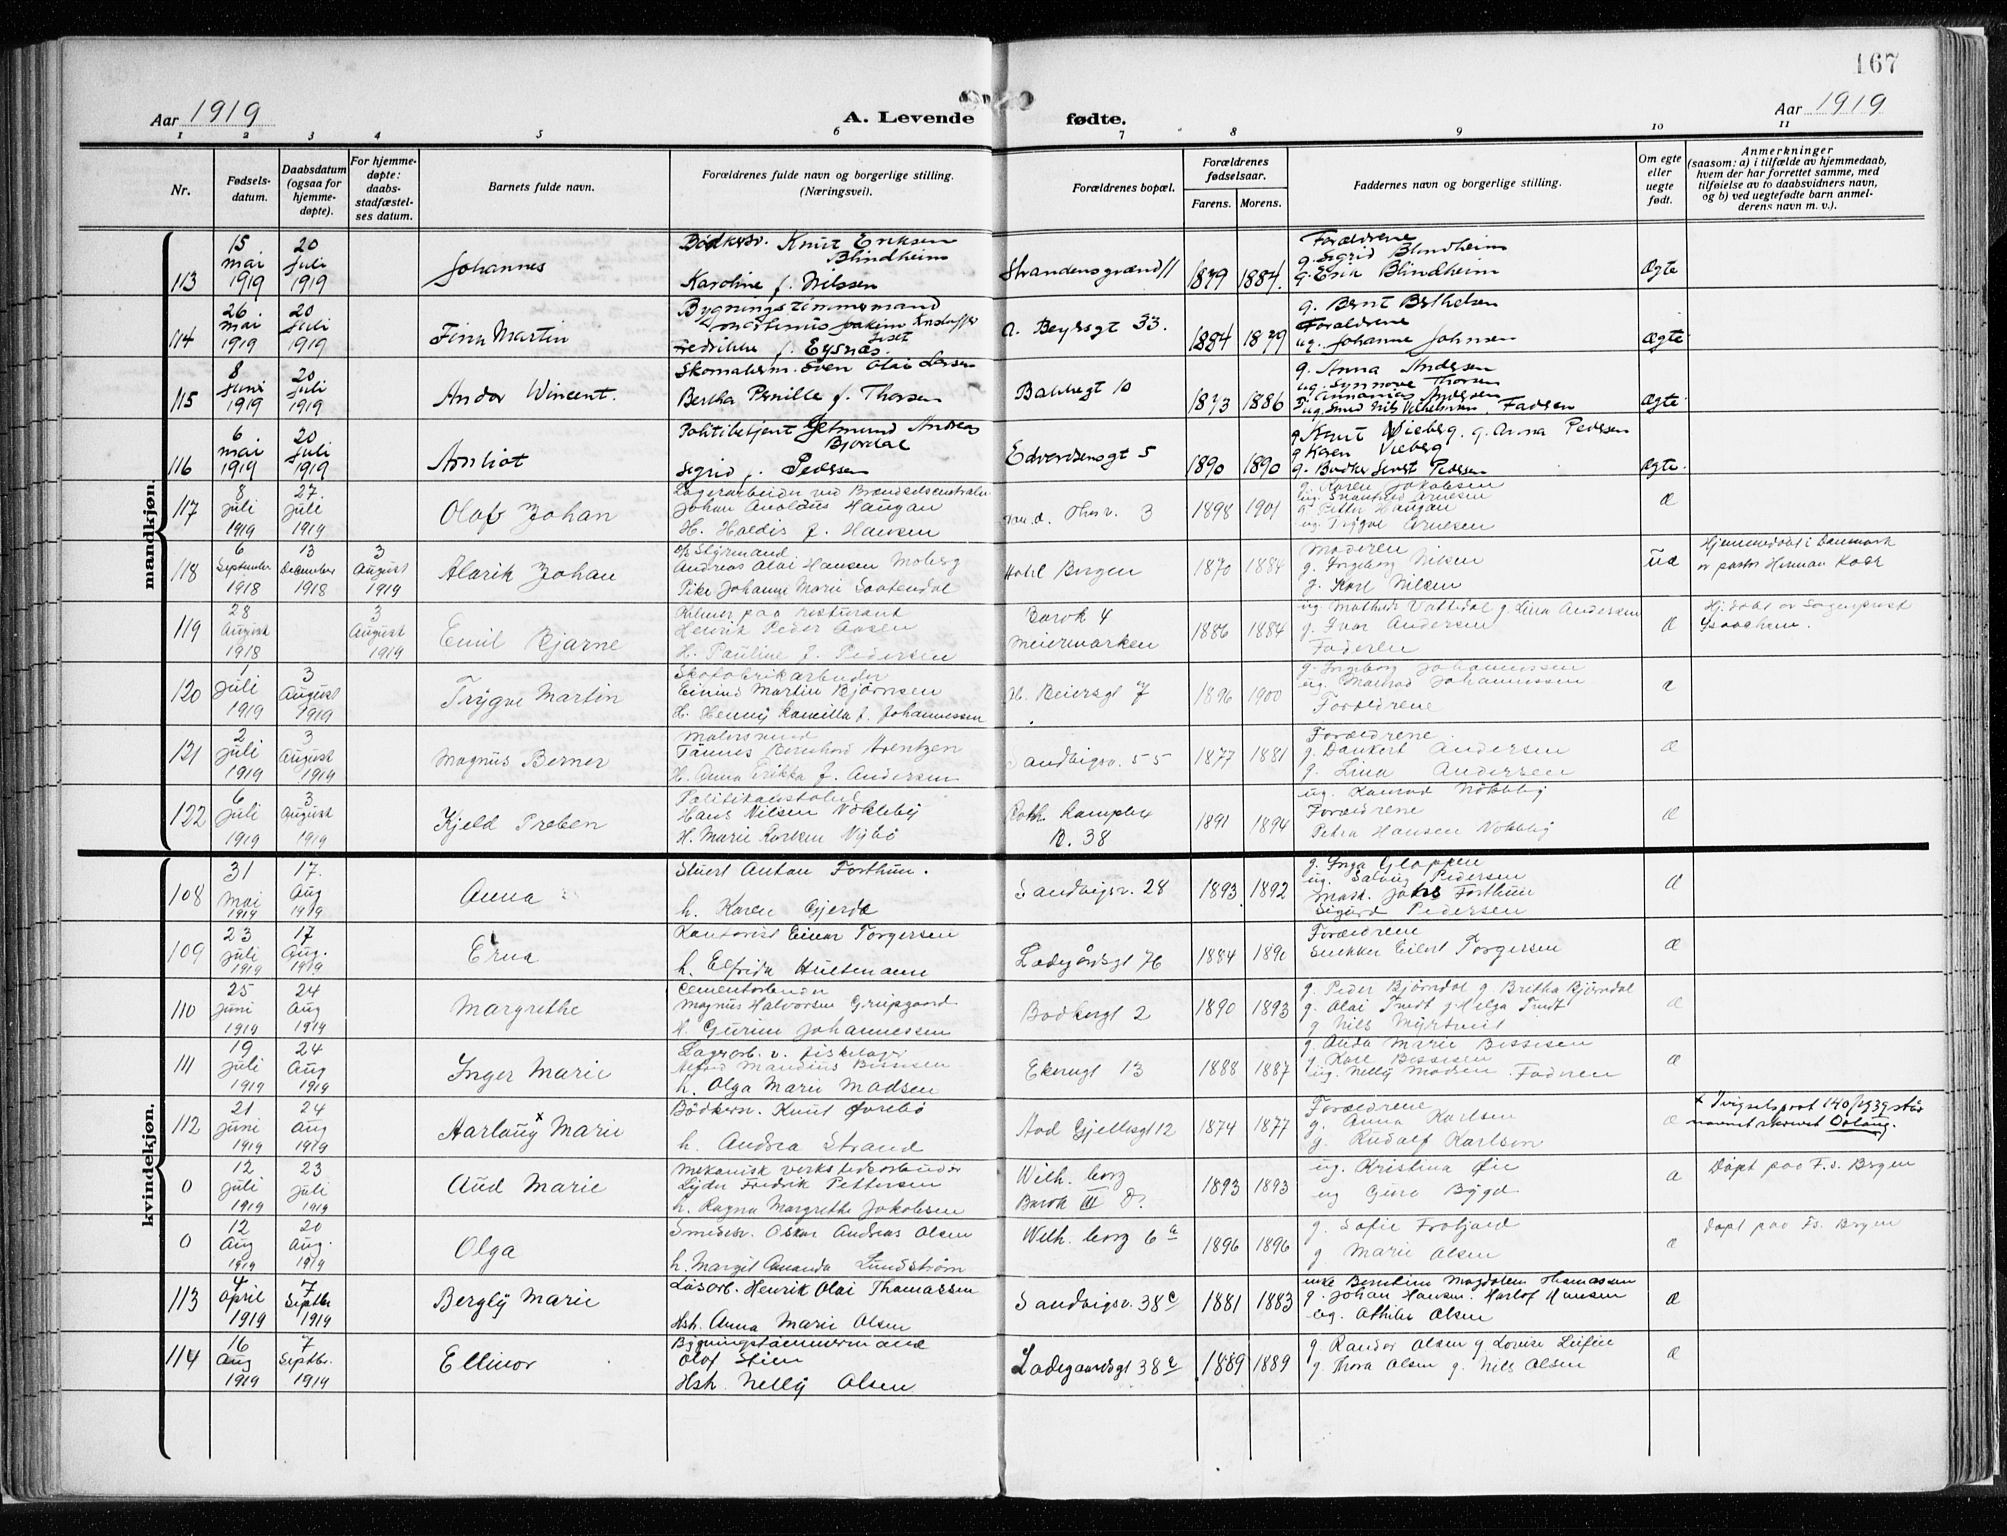 167
Aar 1919
A. Levende fødte.
Aar 1919
1 2 3 4 5 6 7 8 9 10 11
Nr.
Fødsels-
datum.
Daabsdatum
(ogsaa for
hjemme-
døpte).
For hjemme-
døpte:
daabs-
stadfæstel-
ses datum.
Barnets fulde navn.
Forældrenes fulde navn og borgerlige stilling.
(Næringsvei).
Forældrenes bopæl.
Forældrenes
fødselsaar.
Farens. Morens.
Faddernes navn og borgerlige stilling.
Om egte
eller
uegte
født.
Anmerkninger
(saasom: a) i tilfælde av hjemmedaab,
hvem der har forrettet samme, med
tilføielse av to daabsvidners navn,
og b) ved uegtefødte barn anmel-
derens navn m. v.).
mandkjøn.
113
15 mai 1919
20 Juli 1919
Johannes
Bødkersv. Knut Eriksen
Blindheim
Karoline f. Nilssen
Strandensgrænd 11
1879 1884.
Forældrene
g. Sigrid Blindheim
g. Erik Blindheim
Ægte
114
26. mai 1919
20 Juli 1919
Finn Martin
Bygningstømmermand
Martinius Joakim
Fredrikke f. Eysnæs.
A. Beyersgt 33.
1884 1879
g. Bernt Berthelsen
Forældrene
ug. Johanne Johnsen
ægte
115
8 Juni 1919
20 Juli 1919
Andor Wincent.
Skomakerm. Sven Olai Larsen
Bertha Pernille f. Thorsen
Bakkegt 10
1873 1886
g. Anna Andersen
ug. Synnøve Thorsen
Ananias Andersen
Faderen
ægte
116
6 mai 1919
20 Juli 1919
Arnliot
Politibetjent Andreas
Bjørdal
Sigrid f. Pedersen
Edvardsensgt 5
1890 1890
g. Knut Vieberg. g. Anna Pedersen
g. Karen Vieberg
g. Pedersen
Ægte.
117
8 Juli 1919
27. Juli 1919
Olaf Johan
Lagerarbeider ved Brændselscentralen
Johan Aroldus Haugan
H. Haldis f. Hansen
3
1898 1901
g. Karen Jakobsen
ug. Arnesen
g. Petter Haugan
ug. Trygve Arnesen
æ
118
6 September 1918
13 December 1918
3 August 1919
Alarik Johan
Styrmand
Andreas Olai Hansen Moberg
Pike Johanne Marie Saatendal
Hotel Bergen
1870 1884
Moderen
g. Ingeborg Nilsen
g. Karl Nilsen
uæ
Hjemmedøbt i Danmark
av pastor Herman Koch
119
28 August 1918
3 August 1919
Emil Bjarne
Kelner paa resturant
Henrik Peder Aasen
H. Pauline f. Pedersen
Barak 4
Meiermarken
1886 1884
ug. Mathilde Vattedal g. Lina Andersen
g. Ivar Andersen
Faderen
æ
Hj. døbt av Sogneprest
Isaachsen.
120
1 Juli 1919
3 August 1919
Trygve Martin
Skofabrikarbeider
Einind Martin Bjørnsen
H. Henny Kamilla f. Johannessen
H. Beiersgt 7
1896 1900
g. Ingeborg Johannessen
ug. Johannessen
Forældrene
æ
121
2 Juli 1919
3 August 1919
Magnus Berner
Malersvend
Tønnes Bernhard Arentzen
H. Anna Erikka f. Andersen
Sandvigsv. 55
1877 1881
Forældrene.
g. Dankert Andersen
g. Lina Andersen
æ
122
6 Juli 1919
3 August 1919
Kjeld Preben
Hans Nilsen Nøkleby
H. Marie Nybø
D. 38
1891 1894
ug. Konrad Nøkleby
Forældrene
Petra Hansen Nøkleby
æ
kvindekjøn.
108
31 Mai 1919
17. Aug 1919
Anna
Stuert Anton Forthun.
h. Karen Gjerde
Sandvigsv. 28
1893 1892
g. Inga Gloppen
ug. Solveig Pedersen
Mask. Jakob Forthun
Sigurd Pedersen
æ
109
23 Juli 1919
17 Aug. 1919
Erna
Kontorist Einar Torgersen
h. Elfrida Hultmann
Ladegårdsgt 76
1884
Forældrene
Snekker Eilert Torgersen
æ
110
25 Juni 1919
24 Aug 1919
Margrethe
Cementarbeider
Magnus Halvorsen Gripsgaard
h. Gurine Johannessen
Bødkergt 2
1890 1893
g. Peder Bjørndal g. Bretha Bjørndal
g. Olai Tvedt g Helga Tvedt
g Nils Myrtveit
æ
111
19 Juli 1919
24 Aug 1919
Inger Marie
Lagerarb. v. fiskelager
Alfred Mandius Bessesen
h. Olga Marie Madsen
Ekrengt 13
1888 1887
g. Anda Marie Bessesen
g. Karl Bessesen
ug. Nelly Madsen. Faderen
æ
112
21 Juni 1919
24 Aug 1919
Aarlaug x Marie
Bødkersv. Knut Øvrebø
h. Andrea Strand
Aad Gjellesgt 12
1874 1877
Forældrene
g. Anna Karlsen
g. Rudolf Karlsen
æ
x Tvigselsprot 140/1939 står
navnet skrevet Oolaug.
0
12 Juli 1919
23 Juli 1919
Aud Marie
Mekanisk verkstedarbeider
Lyder Fredrik Pettersen
h. Ragna Margrethe Jakobsen
Wilh. borg
Barak III D.
1893 1893
ug. Kristina Øie
ug Guro Bygd
æ
Døpt paa F.s. Bergen
0
12 Aug 1919
20 Aug. 1919
Olga
Smedsv. Oskar Andreas Olsen
h. Margit Amanda Lundstrøm
Wilh. borg 6 a
1896 1896
g. Sofie Frøfjord
g Marie Olsen
æ
Døpt paa Fs. Bergen
113
4 April 1919
7 Septbr 1919
Bergly Marie
Løsarb. Henrik Olai Thomassen
Hsh. Anna Marie Olsen
Sandvigsv. 38 c
1881 1883
enke Berntine Magdalen Thomassen
g. Johan Hansen. Harlof Hansen
ug. Athilie Olsen
æ
114
16 Aug 1919
7 Septbr. 1919
Ellinor
Bygningstømmermand
Olaf Stien
Hsh. Nelly Olsen
Ladegaardsgt 38 c
1889 1889
g. Randor Olsen g Lovise
g. Thora Olsen g. Nils Olsen
æ